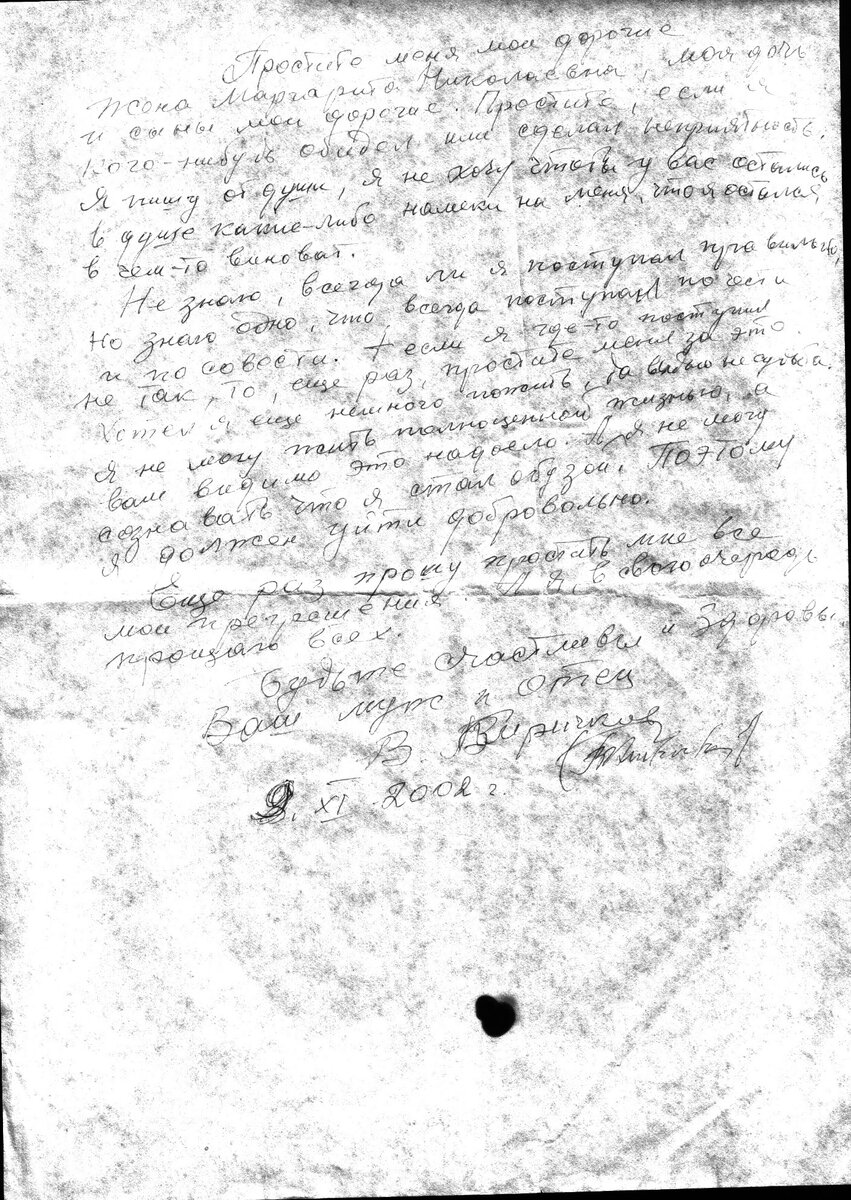 Простите меня мои дорогие
жона Маргарита Николаевна, моя дочь
и сыны мои дорогие. Простите, если я
кого-нибудь обидел или сделал неприятность.
Я пишу от души, я не хочу чтобы у вас остались
в душе какие-либо намеки на меня, что я остался
в чем-то виноват.
Не знаю, всегда ли я поступал правильно,
но знаю одно, что всегда поступал по чести
и по совости. А если я где-то поступил
не так, то, еще раз, простите меня за это.
Хотел я еще немного пожить, да видно не судьба.
Я не могу жить полноценной жизнью, а
вам видимо это надоело. А я не могу
сознавать что я стал обузой. Поэтому
я должен уйти добровольно.
Еще раз прошу простить мне все
мои прегрешения. И я, в свою очередь
прощаю всех.
Будьте счастливы и здоровы.
Ваш муж и отец
В.
9. XI 2002 г.